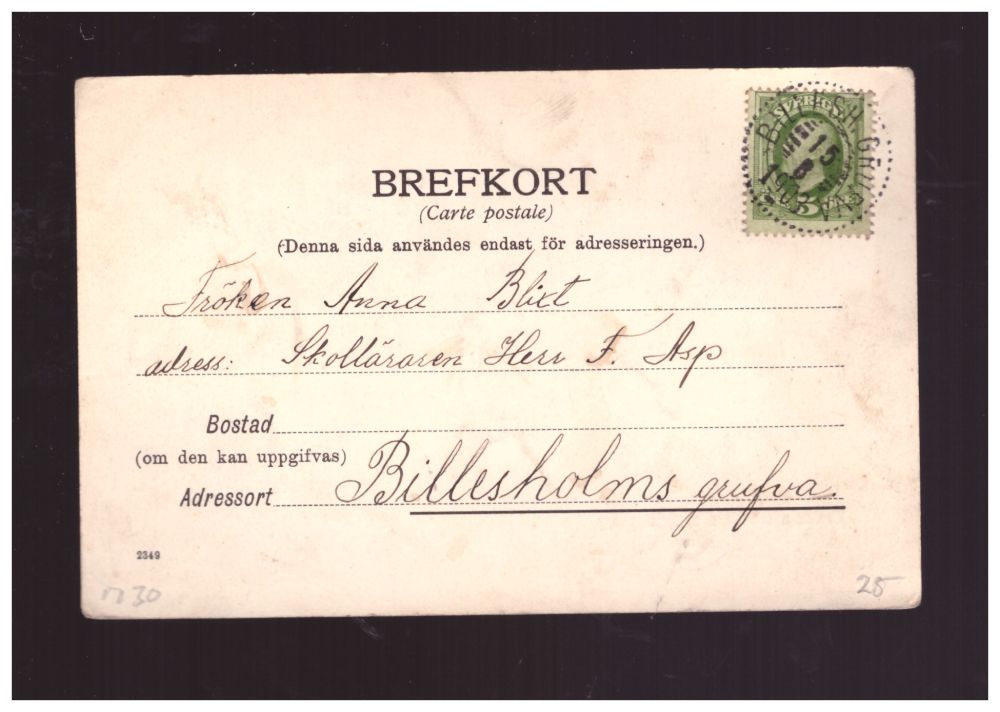 SVERIGE
BILLESH. GRUFVA
15
8
5
BREFKORT
(Carte postale)
(Denna sida användes endast för adresseringen.)
Fröken Anna Blixt
adress: Skolläraren Herr F. Asp
Bostad
(om den kan uppgifvas)
Adressort Billesholms grufva.
2349
30
25